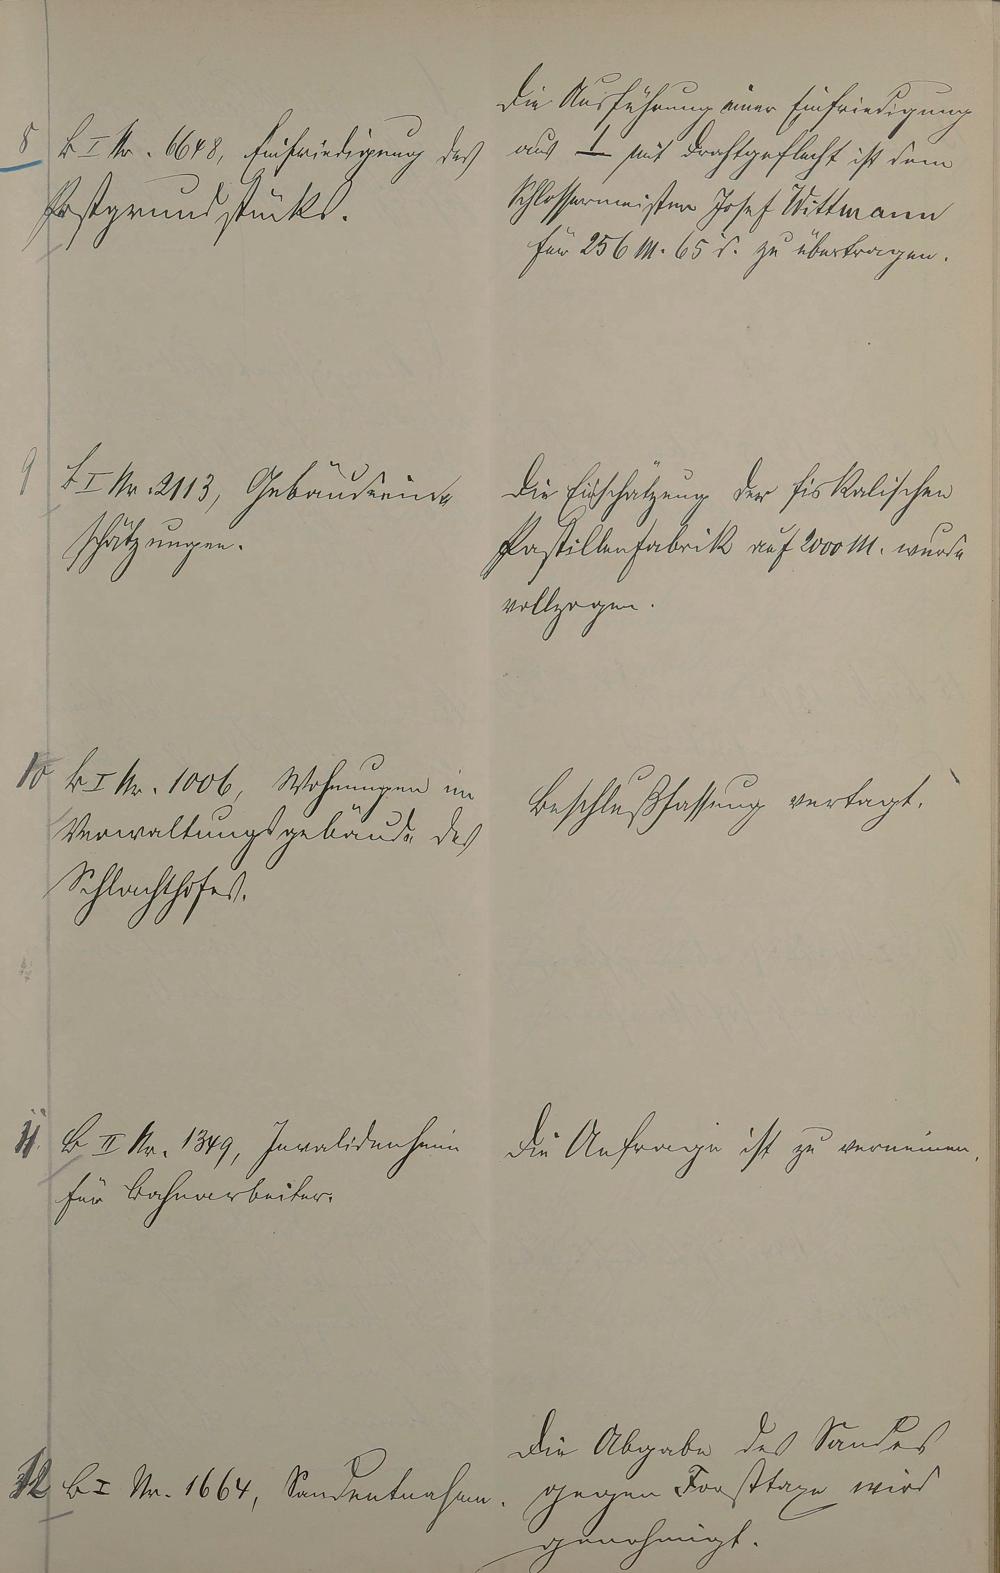 8 B I Nr. 6648, Einfriedigung des
Postgrundstücks.
Die Ausführung einer Einfriedigung
aus ⊥ mit Drahtgeflecht ist dem
Schlossermeister Josef Wittmann
für 256 M. 65 d. zu übertragen.
9 B I Nr. 2113, Gebäudeein-
schätzungen.
Die Einschätzung der fiskalischen
Pastillenfabrik auf 2000 M. wurde
vollzogen.
10 B I Nr. 1006, Wohnungen im
Verwaltungsgebäude des
Schlachthofes.
Beschlußfassung vertagt.
11. B II Nr. 1349, Invalidenheim
für Bahnarbeiter.
Die Anfrage ist zu verneinen.
12 B I Nr. 1664, Sandentnahme.
Die Abgabe des Sandes
gegen Forsttaxe wird
genehmigt.